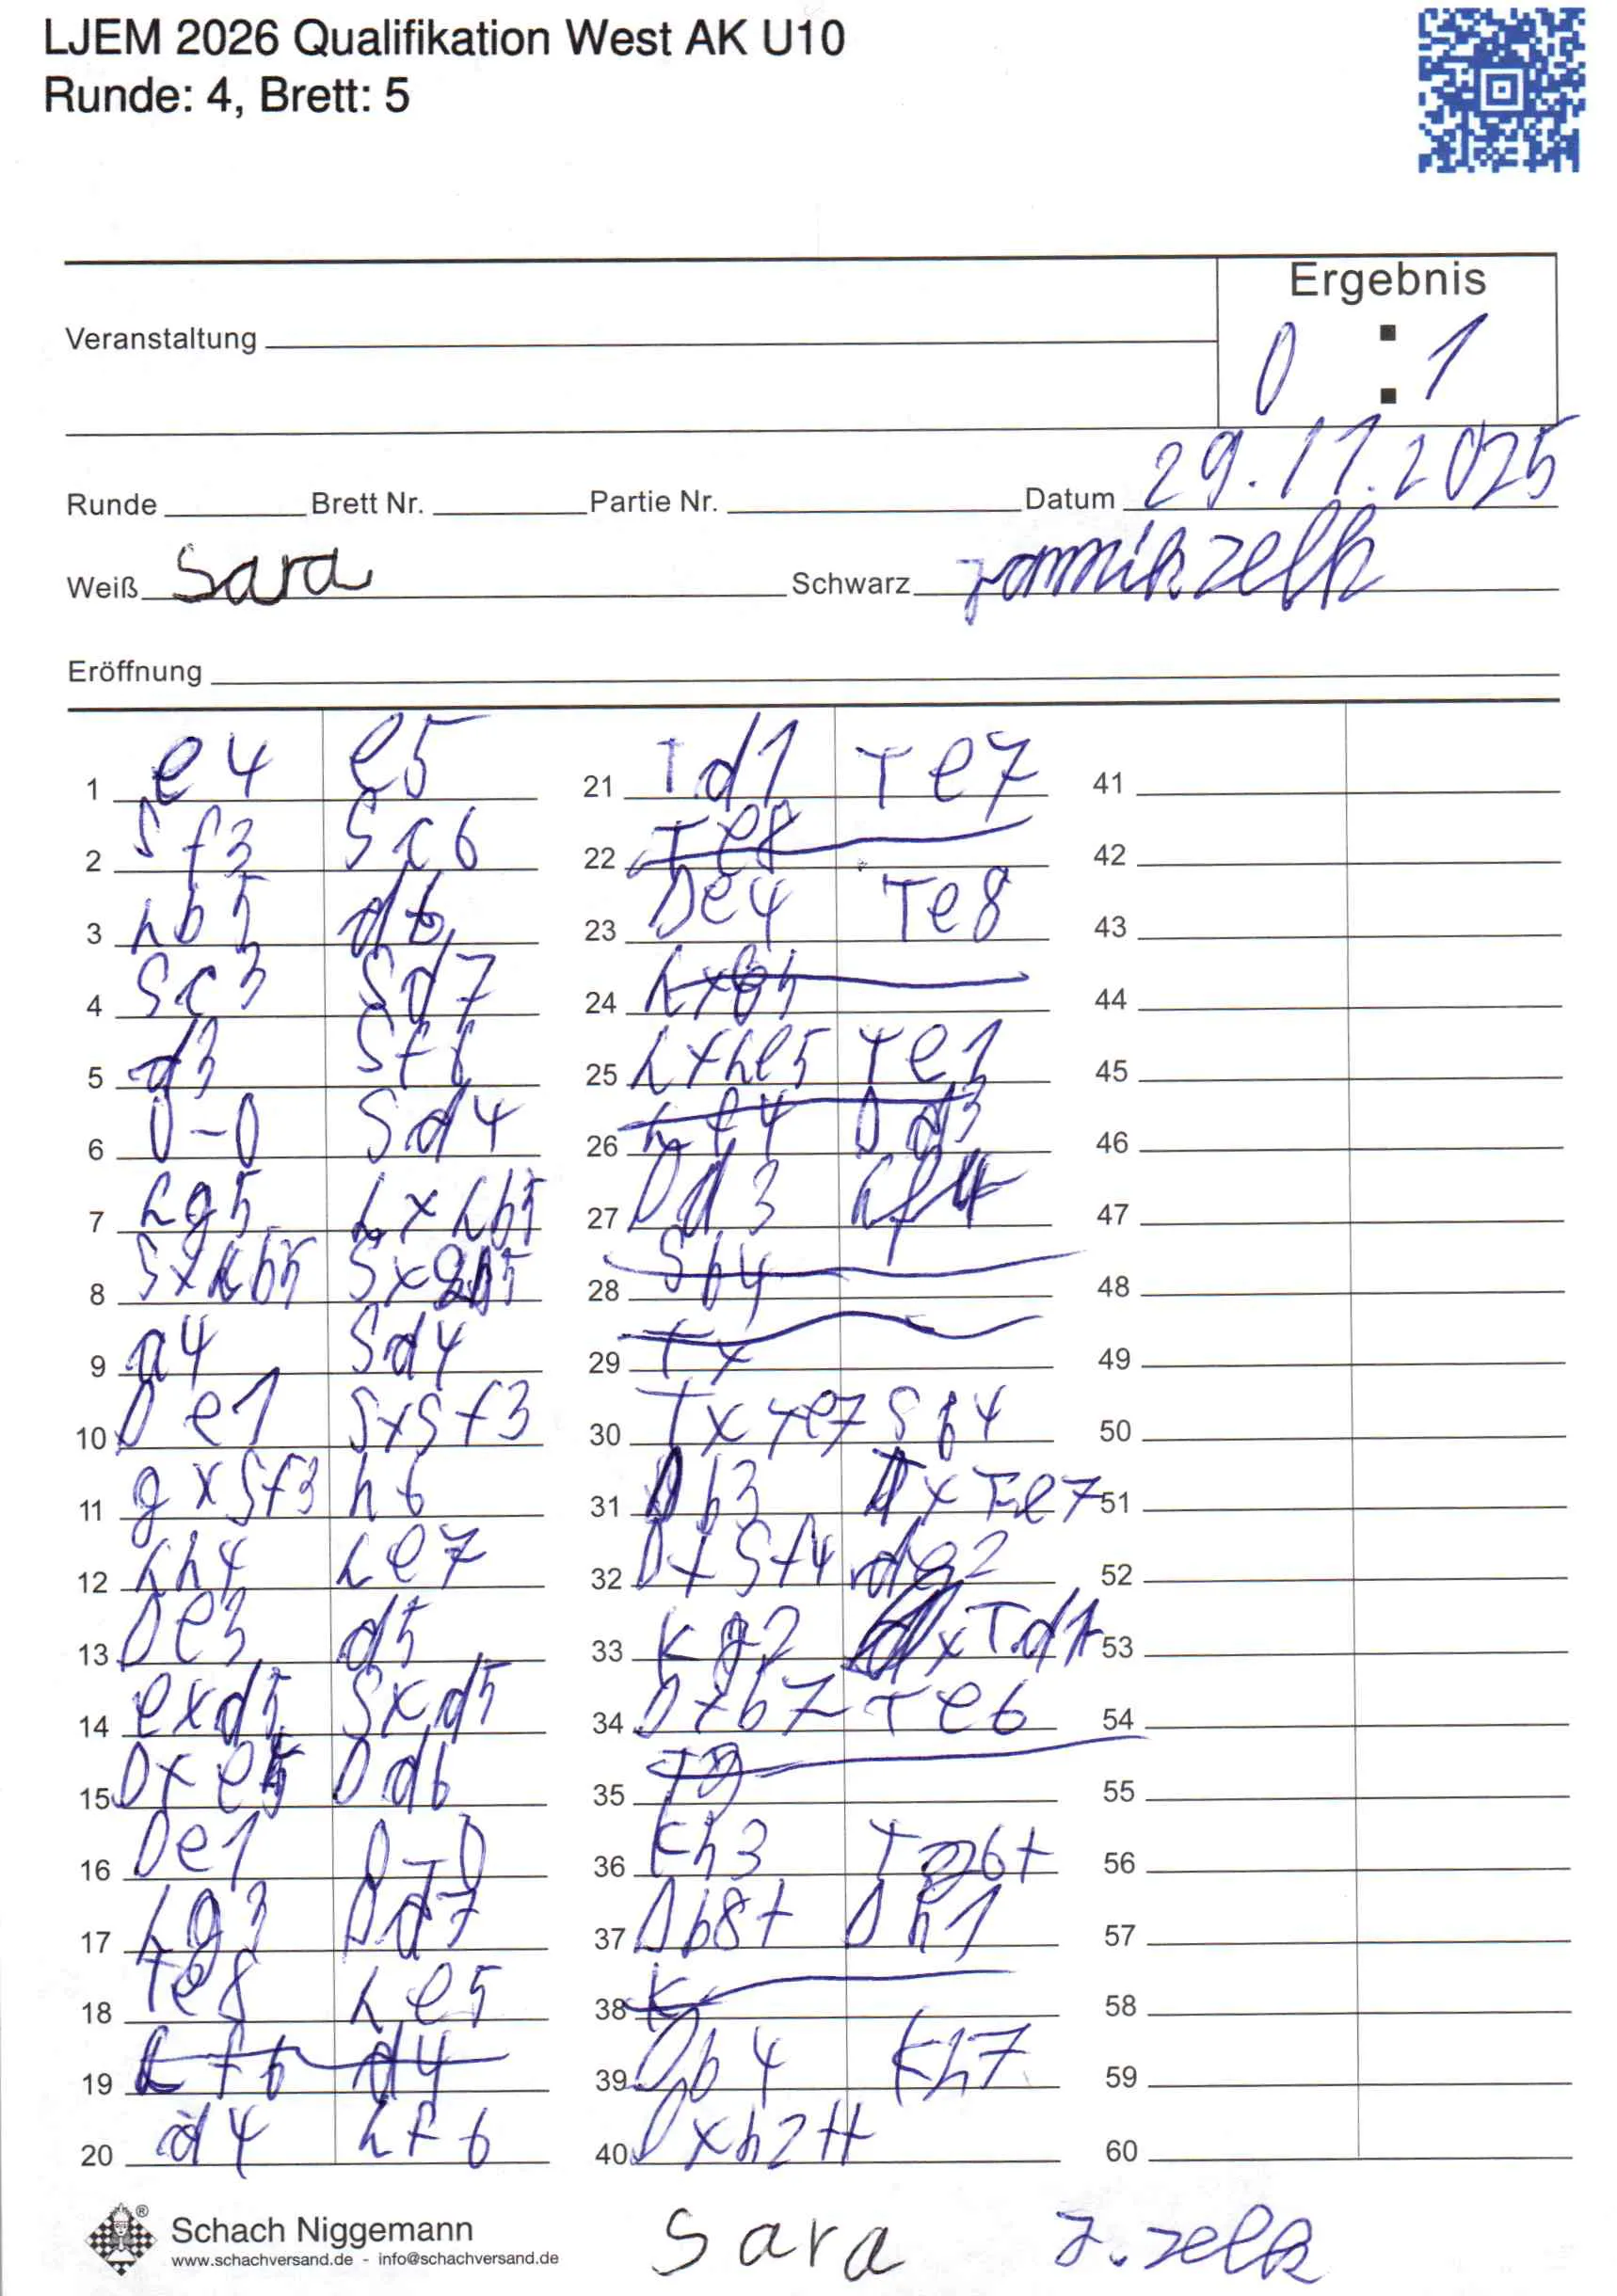 LJEM 2026 Qualifikation West AK U10
Runde: 4, Brett: 5
Ergebnis
0 : 1
Veranstaltung
Runde Brett Nr. Partie Nr. Datum 29.11.2025
Weiß Sara Schwarz
Eröffnung
1 e4 e5
2 Sf3 Sc6
3 Lb5 d6
4 Sc3 Sd7
5 d3 Sf6
6 0-0 Sd4
7 Lg5 LxLb5
8 SxLb5 Sxb5
9 a4 Sd4
10 De1 SxSf3
11 gxSf3 h6
12 Lh4 Le7
13 De3 d5
14 exd5 Sxd5
15 Dxe5 Dd6
16 De1 0-0
17 Lg3 Dd7
18 Te8 Le5
19 d4
20 d4 Lf6
21 Td1 Te7
22 Te8
23 De4 Te8
24
25 LxLe5 Te1
26 Lf4 Dd3
27 Dd3 Lf4
28 Sh4
29 Tx
30 TxTe7 Sf4
31 Db3 TxTe7
32 DxSf4 dg2
33 Kg2 xTd1
34 Dxb7 Te6
35
36 Kh3 Tg6+
37 Db8+ Dh1
38 K
39 Db4 Kh7
40 Dxh2++
41
42
43
44
45
46
47
48
49
50
51
52
53
54
55
56
57
58
59
60
Schach Niggemann
www.schachversand.de - info@schachversand.de
Sara J. Zelk